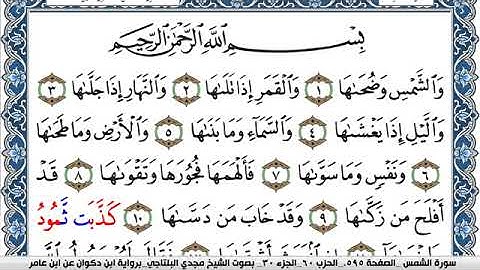 بِسْمِ اللَّهِ الرَّحْمَٰنِ الرَّحِيمِ
وَالشَّمْسِ وَضُحَىٰهَا ١ وَالْقَمَرِ إِذَا تَلَىٰهَا ٢ وَالنَّهَارِ إِذَا جَلَّىٰهَا ٣
وَالَّيْلِ إِذَا يَغْشَىٰهَا ٤ وَالسَّمَآءِ وَمَا بَنَىٰهَا ٥ وَالْأَرْضِ وَمَا طَحَىٰهَا
٦ وَنَفْسٍ وَمَا سَوَّىٰهَا ٧ فَأَلْهَمَهَا فُجُورَهَا وَتَقْوَىٰهَا ٨ قَدْ
أَفْلَحَ مَن زَكَّىٰهَا ٩ وَقَدْ خَابَ مَن دَسَّىٰهَا ١٠ كَذَّبَت ثَّمُودُ
سورة الشمس _الصفحة ٥٩٥_ الحزب ٦٠_الجزء ٣٠_ بصوت الشيخ مجدي البلتاجي_برواية ابن ذكوان عن ابن عامر